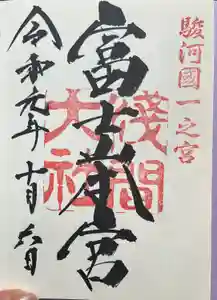 駿河國一之宮
富士本宮
淺間大社
令和元年十月六日